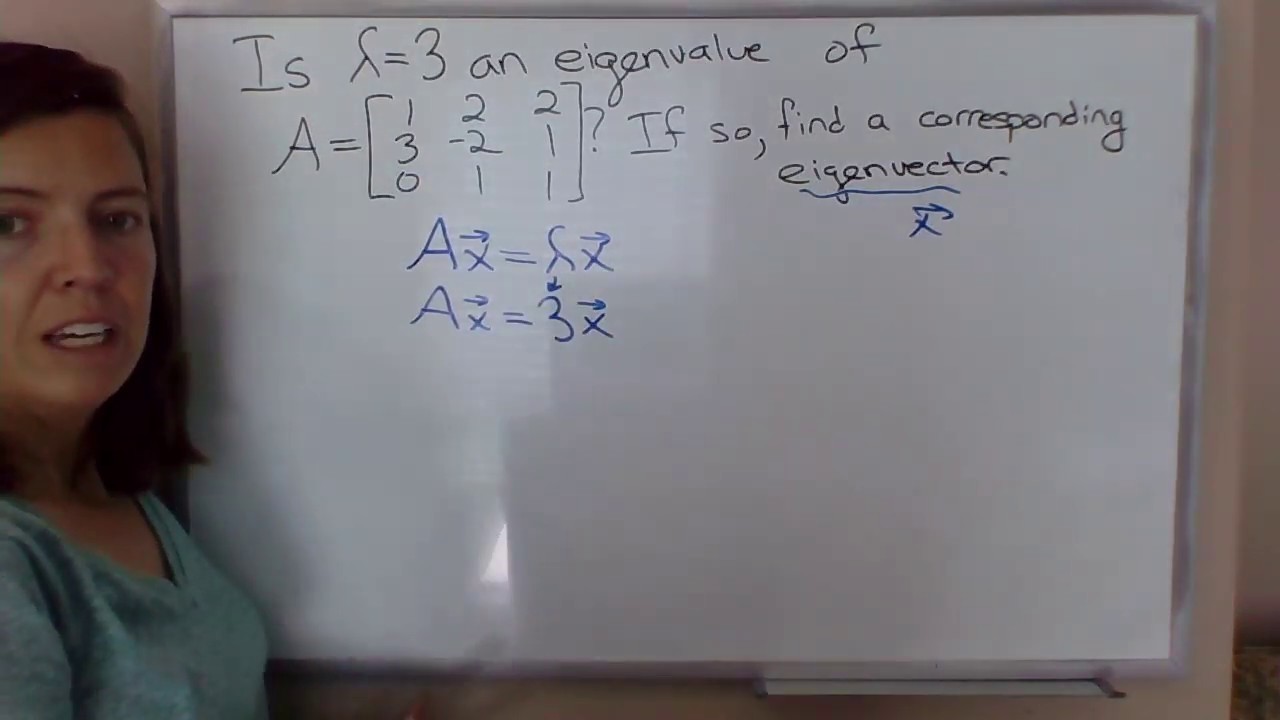 Is λ=3 an eigenvalue of
A = [1 2 2
3 -2 1
0 1 1]? If so, find a corresponding
eigenvector.
x⃗
Ax⃗ = λx⃗
Ax⃗ = 3x⃗